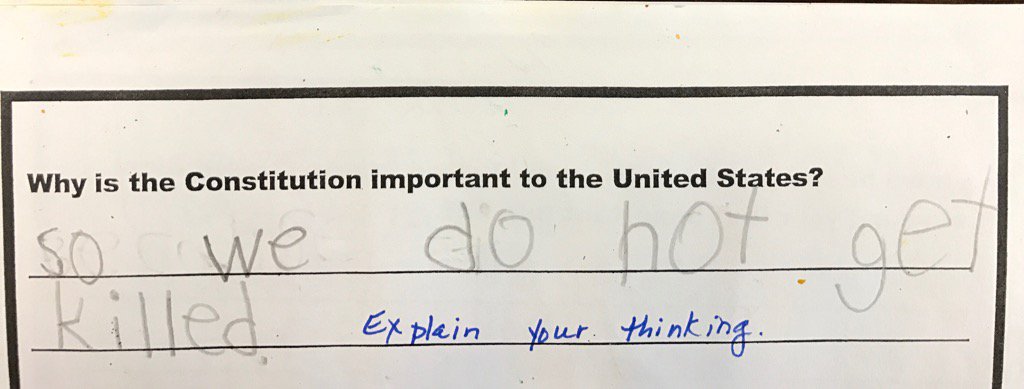 Why is the Constitution important to the United States?
so we do not get
killed. Explain your thinking.